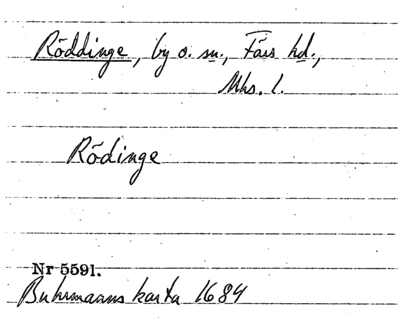 Röddinge, by o. sn., Färs hd.,
Mhs. l.
Rödinge
Nr 5591.
Buhrmanns karta 1684